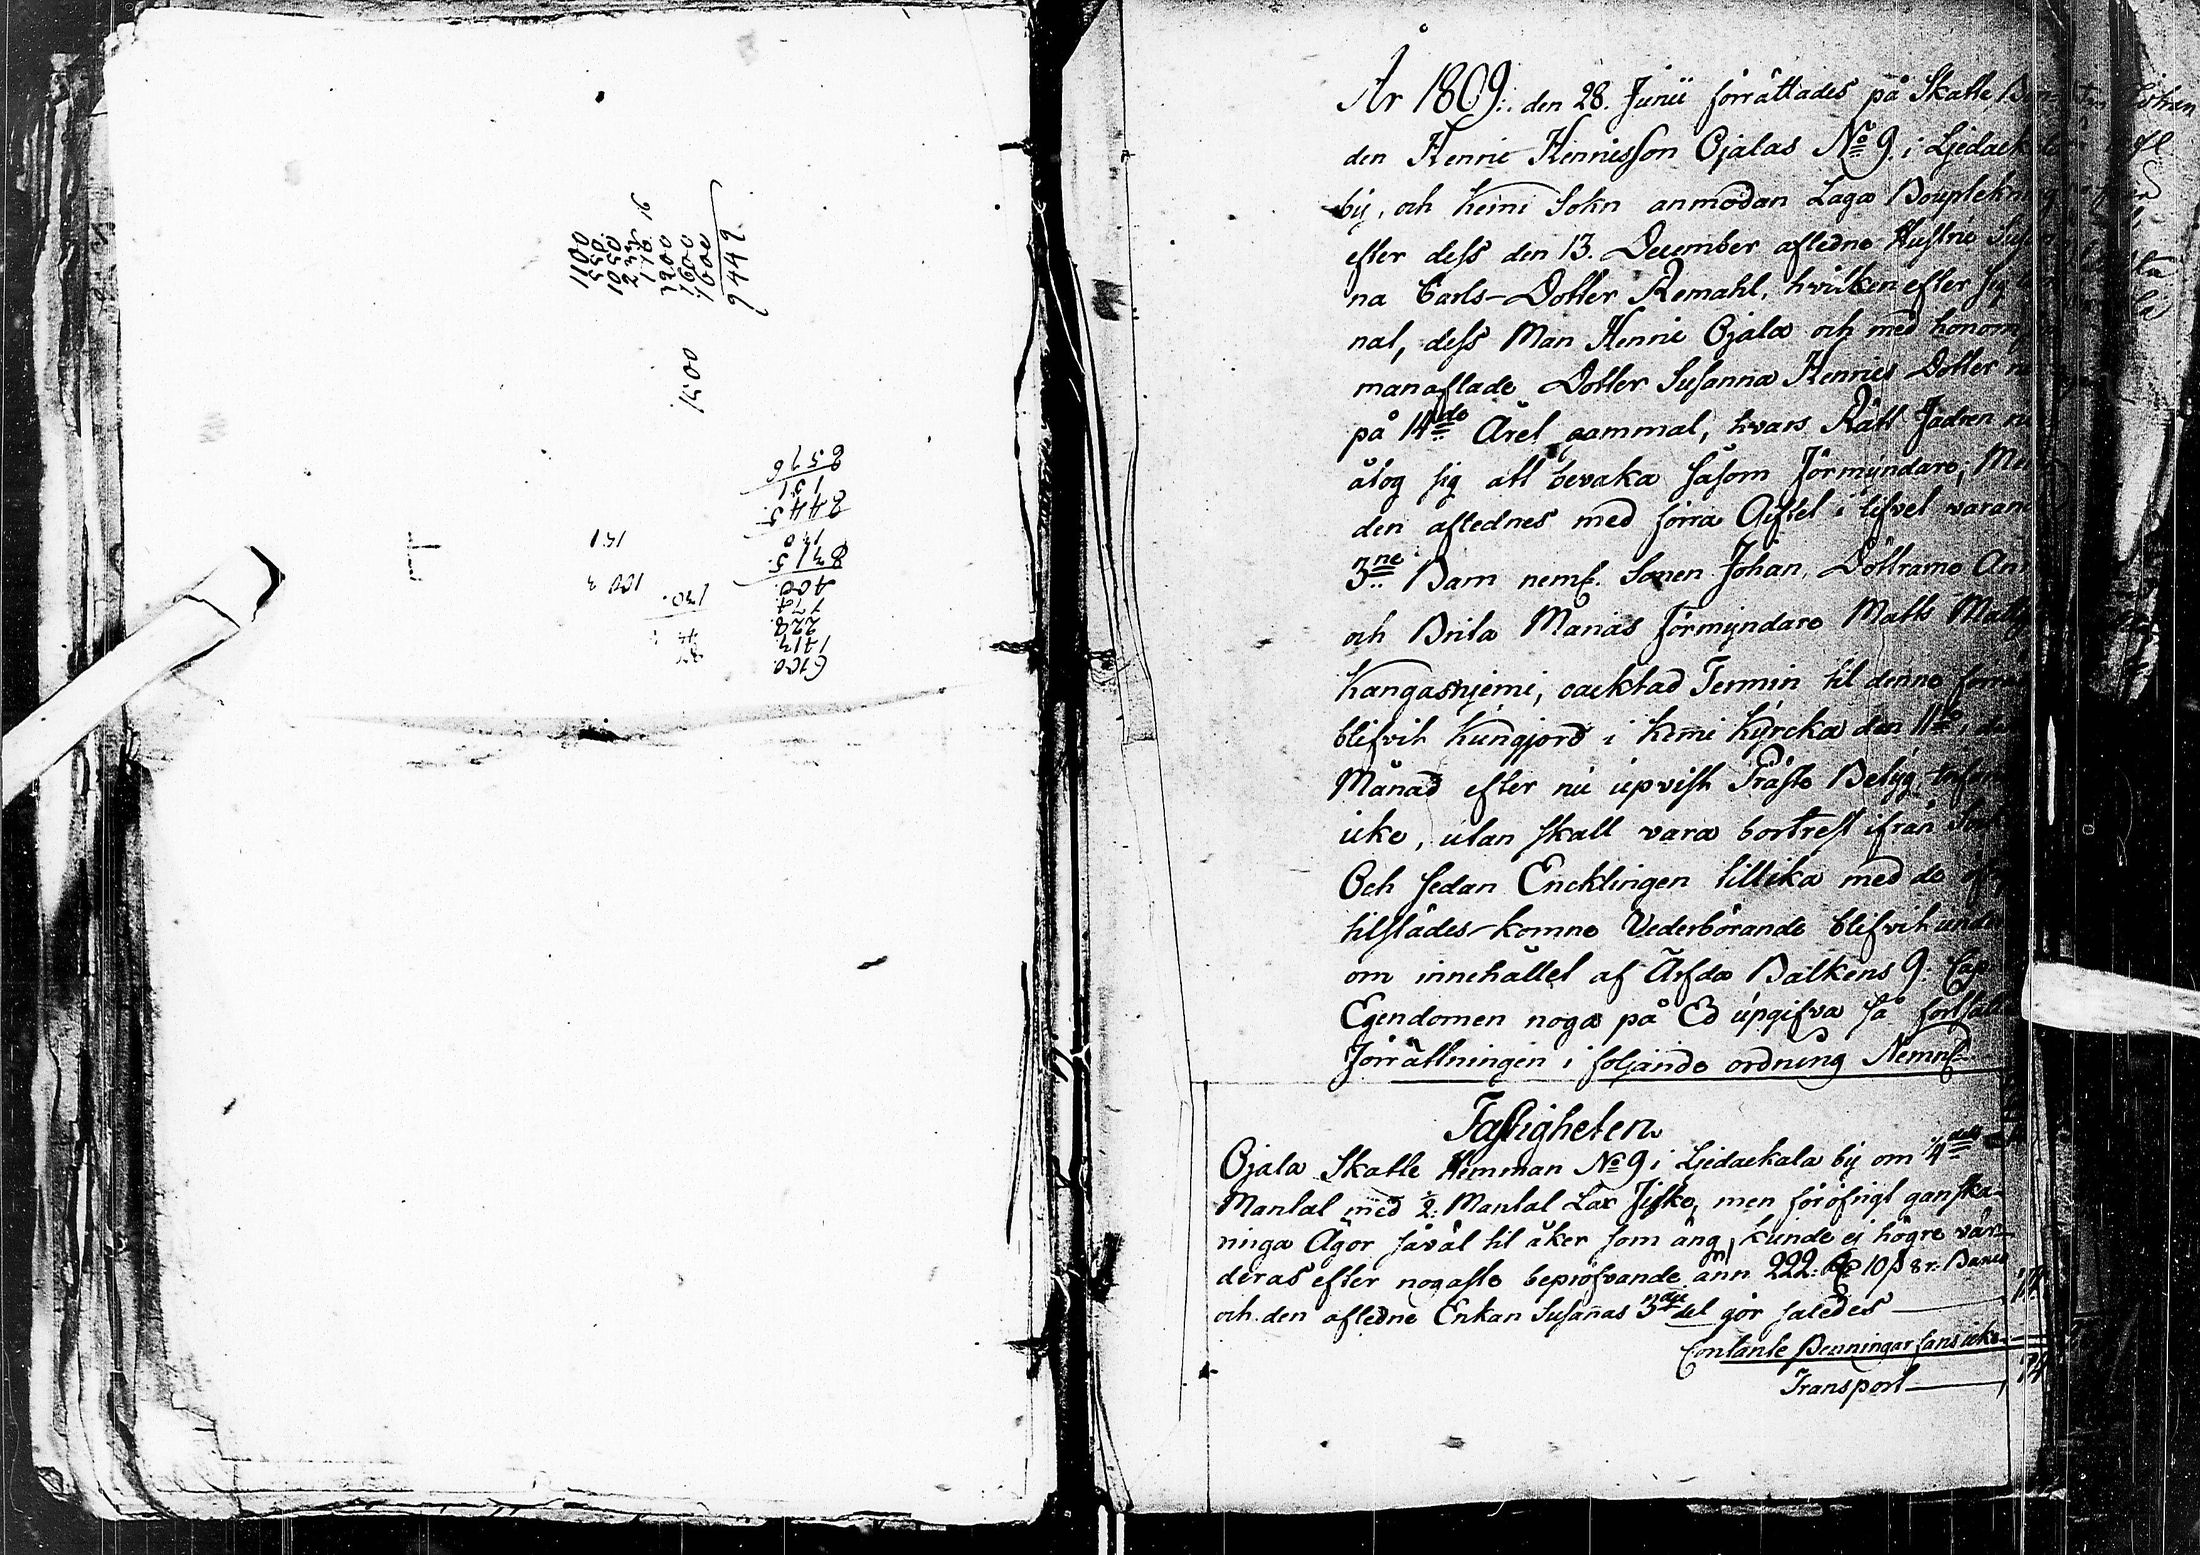 1100
550
1050
233
116 16
3900
1600
1000
9449
1500
6100.
1713
228.
174.
400.
8315.
130
8445.
131
8576
130.
1003
151
År 1809. den 28. Junii förrättades på Skatte Bon-
den Henric Hennisson Ojalas No 9. i Liedack
by, och Kemi Sokn anmodan Laga Bouptekn
efter dess den 13. December afledne Hustrue Susan
na Carls-Dotter Remahl, hvilken efter sig
nal, dess Man Henric Ojala och med honom
manaflade Dotter Susanna Henrics Dotter
på 14de Året gammal, hvars Rätt Fadren
åtog sig att bevaka såsom Förmyndare; Me
den aflednes med förra Giftet i lifvet varan
3ne Barn neml. Sonen Johan, Döttrarne An
och Brita Marias Förmyndare Matts Matts
Kangasnjemi, oacktad Termin til denne förrä
blifvit kungjord i Kemi Kyrcka den 11te i de
Månad efter nu upvist Präste Betyg, infan
icke, utan skall vara bortrest ifrån
Och sedan Encklingen tillika med de öf
tilstädes-komne Vederbörande blifvit unde
om innehållet af Ärfda Balkens 9. Cap
Egendomen noga på Ed upgifva så fortsatt
Förrättningen i foljande ordning Neml.
Fastigheten
Ojala Skatte Hemman No 9 i Liedackala by om 1/4dels
Mantal med 1/2. Mantal Lax Fiske, men för öfrigt ganska
ringa Ägor såväl til åker som äng, kunde ej högre vär-
deras efter nogaste bepröfvande änn 222. Rd 10 s 8 r. Banco
och den afledne Enkan Susanas 3die del gör således 74
Contante Penningar fans icke
Transport 74